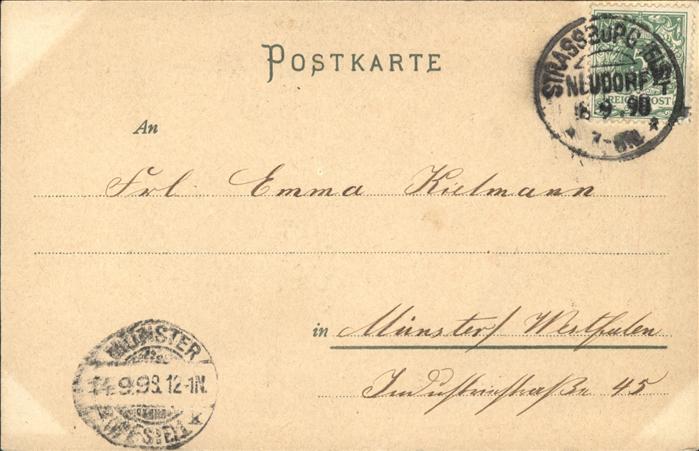 POSTKARTE
STRASSBURG
NEUDORF
REICHSPOST
An
Frl. Emma Kielmann
in Münster / Westfalen
Industriestraße 45
MÜNSTER
14.9.98.12-1N.
(WESTF.)